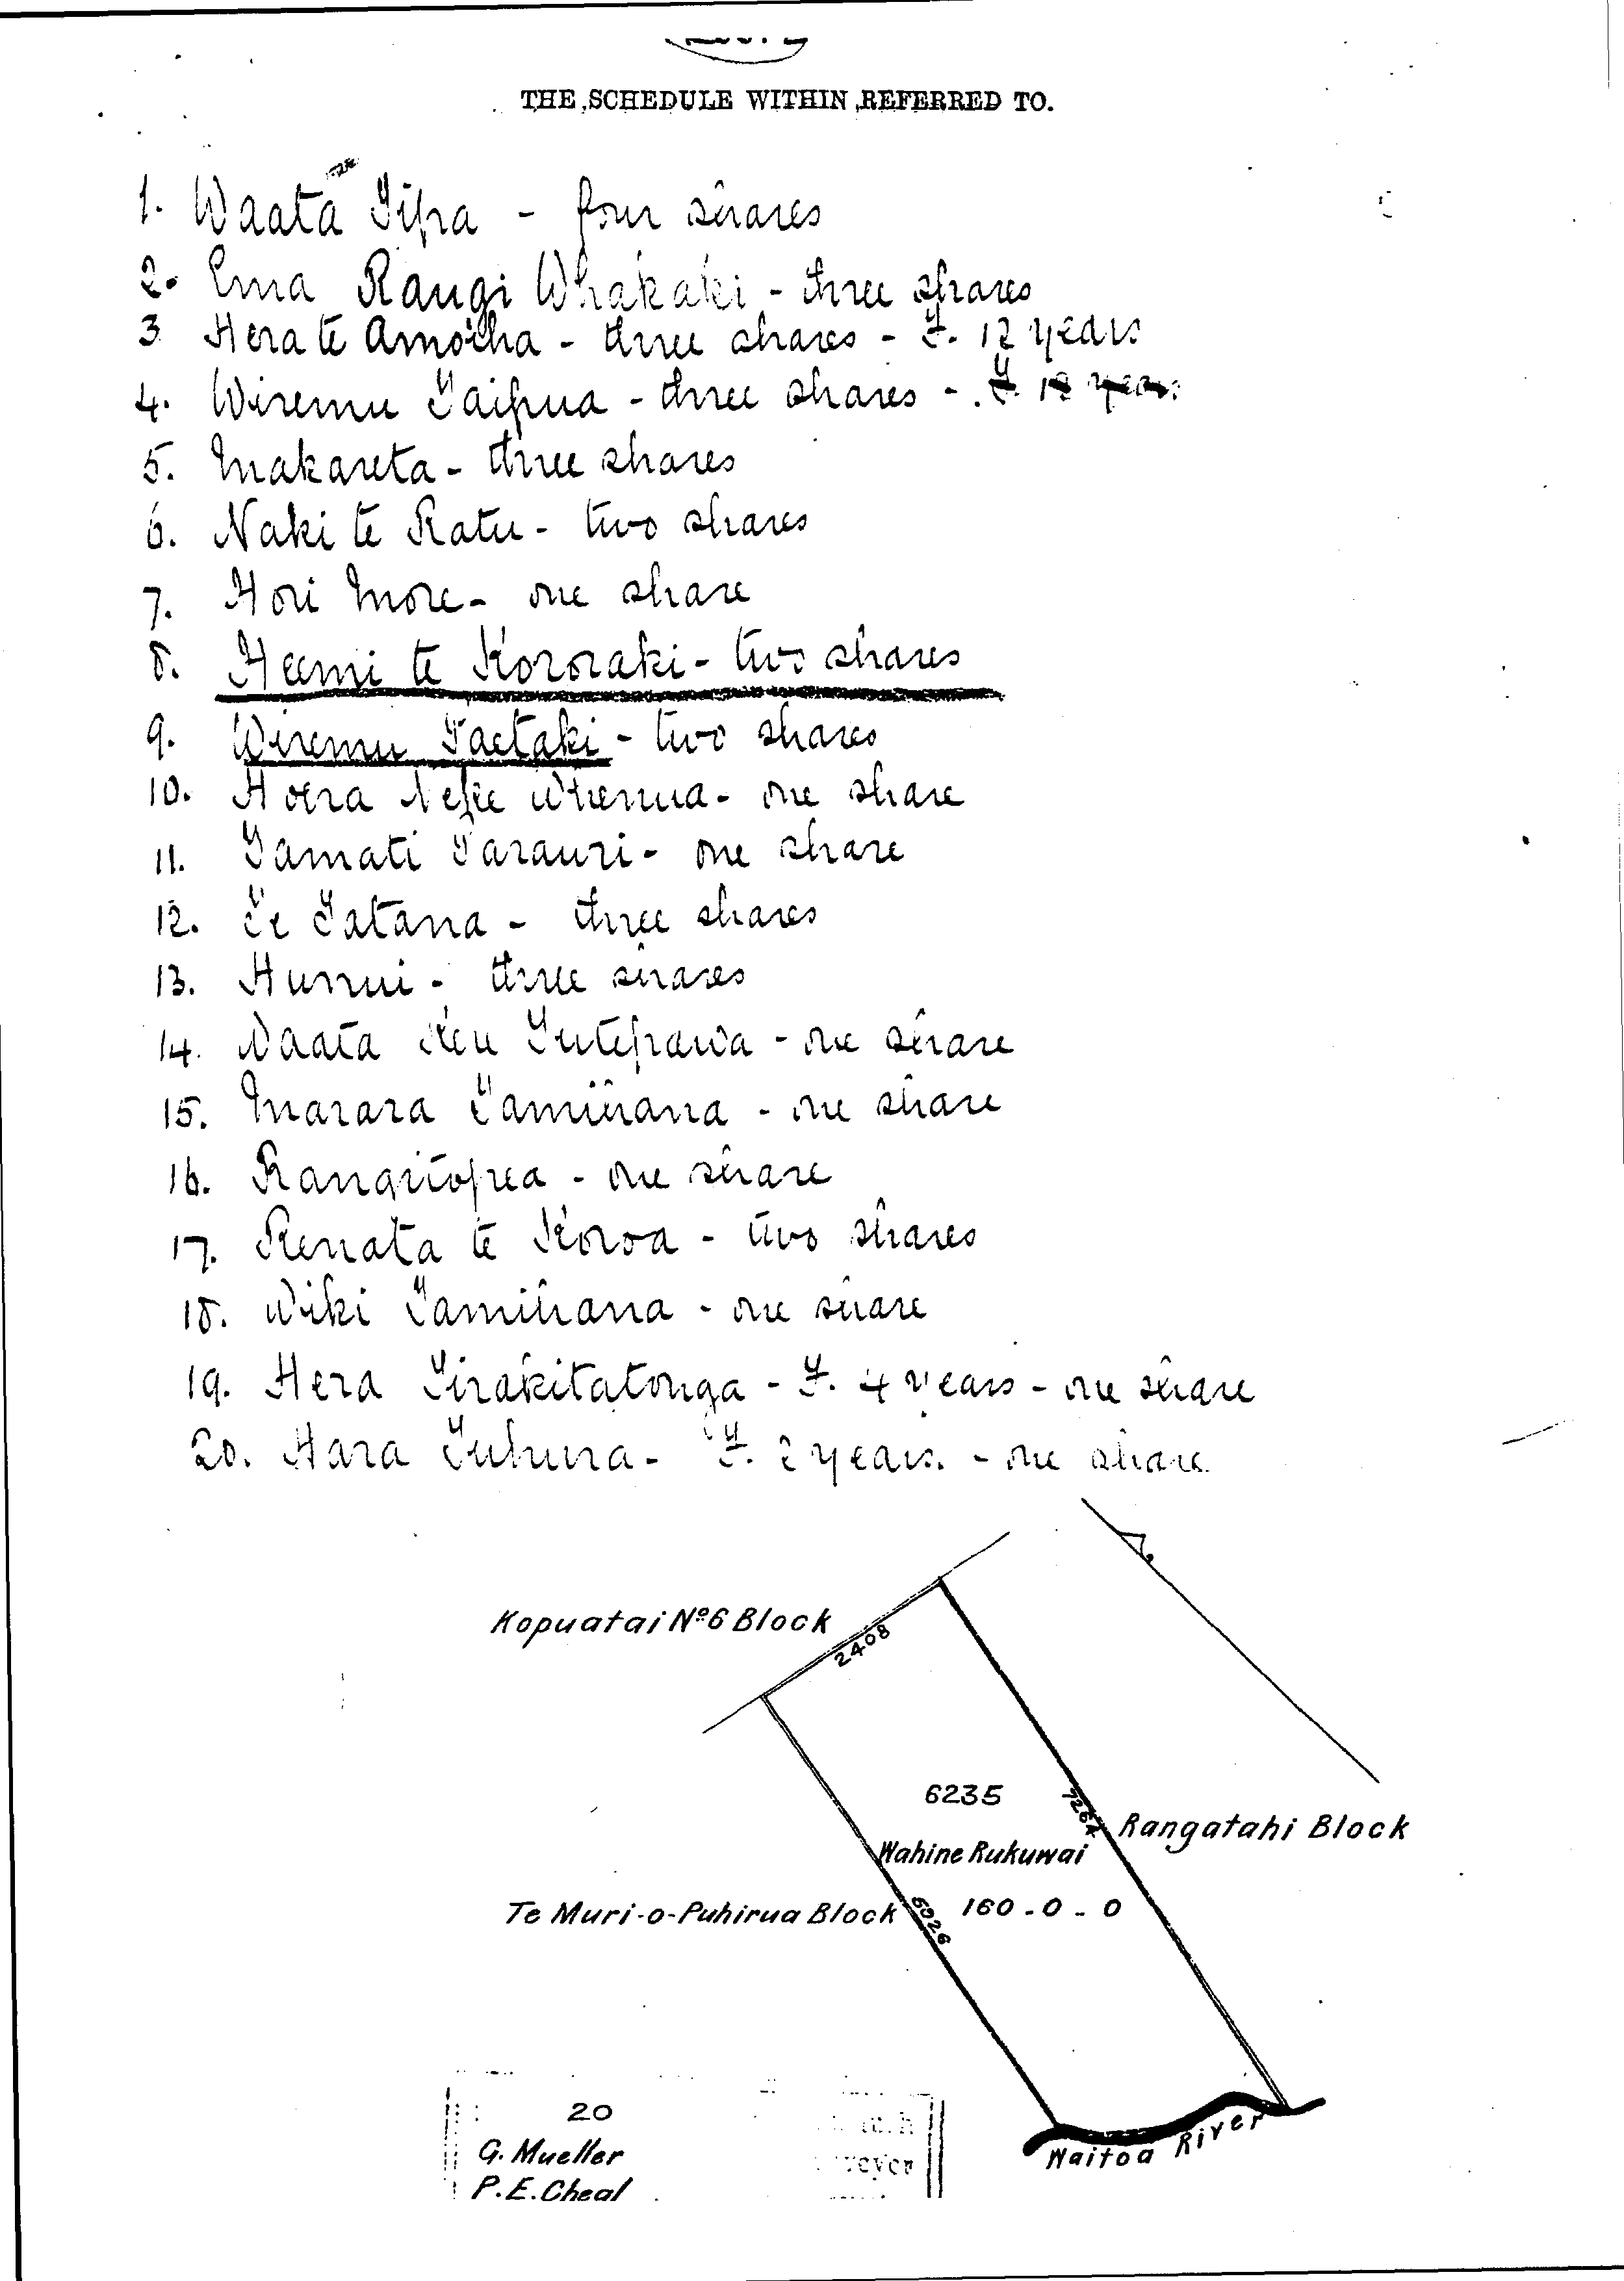 THE SCHEDULE WITHIN REFERRED TO.
1. Waata Tipa - four shares
2. Ema Rangi Whakaki - three shares
3 Hera te Amoiha - three shares - F. 12 years
4. Wiremu Taipua - three shares - F. 18 years
5. Makareta - three shares
6. Naki te Ratu - two shares
7. Hori More - one share
8. Heemi te Kororaki - two shares
9. Wiremu Taetaki - two shares
10. Hoera Nepe Whenua - one share
11. Tamati Tarauri - one share
12. Te Tatana - three shares
13. Hunui - three shares
14. Waata Keu Tutepawa - one share
15. Marara Tamihana - one share
16. Rangitopea - one share
17. Renata te Koroa - two shares
18. Wiki Tamihana - one share
19. Hera Tirakitatonga - F. 4 years - one share
20. Hara Tuhuna - F. 2 years. - one share
Kopuatai No. 6 Block
2408
6235
7264
Rangatahi Block
Wahine Rukuwai
Te Muri-o-Puhirua Block
6026
160 - 0 - 0
Waitoa River
20
G. Mueller
P. E. Cheal